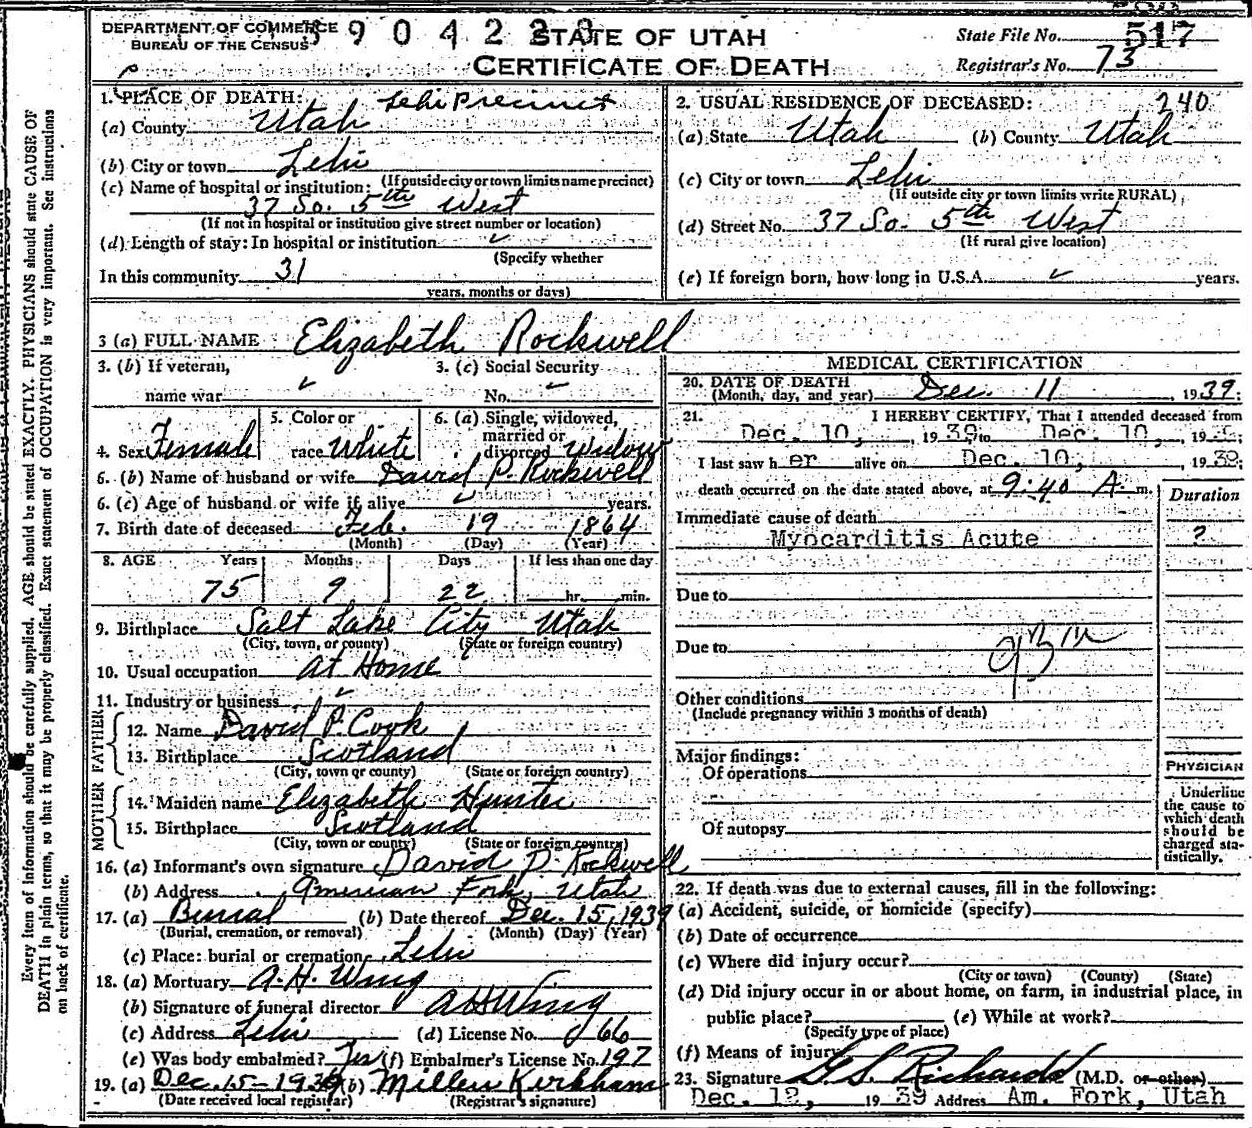 DEPARTMENT OF COMMERCE
BUREAU OF THE CENSUS
3 9 0 4 2 2 3
STATE OF UTAH
CERTIFICATE OF DEATH
State File No. 517
Registrar's No. 73
1. PLACE OF DEATH: Lehi Precinct
(a) County Utah
(b) City or town Lehi
(If outside city or town limits name precinct)
(c) Name of hospital or institution:
37 So. 5th West
(If not in hospital or institution give street number or location)
(d) Length of stay: In hospital or institution ✓
(Specify whether
In this community 31
years, months or days)
2. USUAL RESIDENCE OF DECEASED: 240
(a) State Utah (b) County Utah
(c) City or town Lehi
(If outside city or town limits write RURAL)
(d) Street No. 37 So. 5th West
(If rural give location)
(e) If foreign born, how long in U.S.A. ✓ years.
3 (a) FULL NAME Elizabeth Rockwell
3. (b) If veteran, 3. (c) Social Security
name war ✓ No. ✓
4. Sex Female 5. Color or race White 6. (a) Single, widowed, married or divorced Widow
6. (b) Name of husband or wife David P. Rockwell
6. (c) Age of husband or wife if alive ✓ years.
7. Birth date of deceased Feb. 19 1864
(Month) (Day) (Year)
8. AGE Years Months Days If less than one day
75 9 22 hr. min.
9. Birthplace Salt Lake City Utah
(City, town, or county) (State or foreign country)
10. Usual occupation at Home
11. Industry or business ✓
FATHER
12. Name David P. Cook
13. Birthplace Scotland
(City, town or county) (State or foreign country)
MOTHER
14. Maiden name Elizabeth Hunter
15. Birthplace Scotland
(City, town or county) (State or foreign country)
16. (a) Informant's own signature David P. Rockwell
(b) Address American Fork, Utah
17. (a) Burial (b) Date thereof Dec. 15, 1939
(Burial, cremation, or removal) (Month) (Day) (Year)
(c) Place: burial or cremation Lehi
18. (a) Mortuary A. H. Wing
(b) Signature of funeral director A H Wing
(c) Address Lehi (d) License No. 66
(e) Was body embalmed? Yes (f) Embalmer's License No. 197
19. (a) Dec. 15-1939 (b) Millen Kirkham
(Date received local registrar) (Registrar's signature)
MEDICAL CERTIFICATION
20. DATE OF DEATH Dec. 11 1939;
(Month, day, and year)
21. I HEREBY CERTIFY, That I attended deceased from
Dec. 10, 1939 to Dec. 10, 1939;
I last saw her alive on Dec. 10, 1939;
death occurred on the date stated above, at 9:40 A. m.
Duration
Immediate cause of death
Myocarditis Acute ?
Due to
Due to
Other conditions
(Include pregnancy within 3 months of death)
Major findings:
Of operations
Of autopsy
PHYSICIAN
Underline
the cause to
which death
should be
charged sta-
tistically.
22. If death was due to external causes, fill in the following:
(a) Accident, suicide, or homicide (specify)
(b) Date of occurrence
(c) Where did injury occur?
(City or town) (County) (State)
(d) Did injury occur in or about home, on farm, in industrial place, in
public place? (e) While at work?
(Specify type of place)
(f) Means of injury
23. Signature G. S. Richards (M.D. or other)
Dec. 12, 1939 Address Am. Fork, Utah
Every item of information should be carefully supplied. AGE should be stated EXACTLY. PHYSICIANS should state CAUSE OF
DEATH in plain terms, so that it may be properly classified. Exact statement of OCCUPATION is very important. See instructions
on back of certificate.